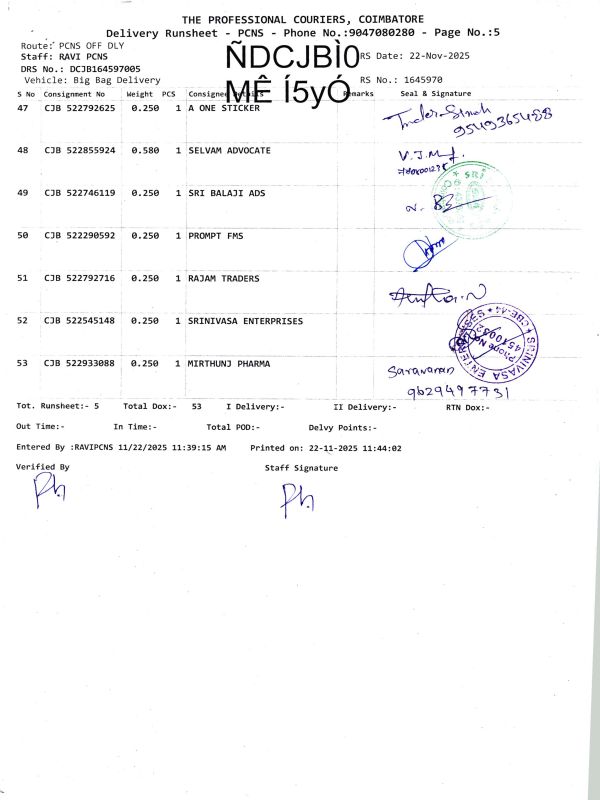 THE PROFESSIONAL COURIERS, COIMBATORE
Delivery Runsheet - PCNS - Phone No.:9047080280 - Page No.:5
Route: PCNS OFF DLY
Staff: RAVI PCNS
ÑDCJBÌ0
RS Date: 22-Nov-2025
DRS No.: DCJB164597005
Vehicle: Big Bag Delivery
MÊ Í5yÓ
RS No.: 1645970
S No Consignment No Weight PCS Consignee Details Remarks Seal & Signature
47 CJB 522792625 0.250 1 A ONE STICKER
9549365488
48 CJB 522855924 0.580 1 SELVAM ADVOCATE
49 CJB 522746119 0.250 1 SRI BALAJI ADS
SRI
50 CJB 522290592 0.250 1 PROMPT FMS
51 CJB 522792716 0.250 1 RAJAM TRADERS
52 CJB 522545148 0.250 1 SRINIVASA ENTERPRISES
SRINIVASA ENTERPRISES CBE-44
Phone No
53 CJB 522933088 0.250 1 MIRTHUNJ PHARMA
Saravanan
9629497731
Tot. Runsheet:- 5 Total Dox:- 53 I Delivery:- II Delivery:- RTN Dox:-
Out Time:- In Time:- Total POD:- Delvy Points:-
Entered By :RAVIPCNS 11/22/2025 11:39:15 AM Printed on: 22-11-2025 11:44:02
Verified By Staff Signature